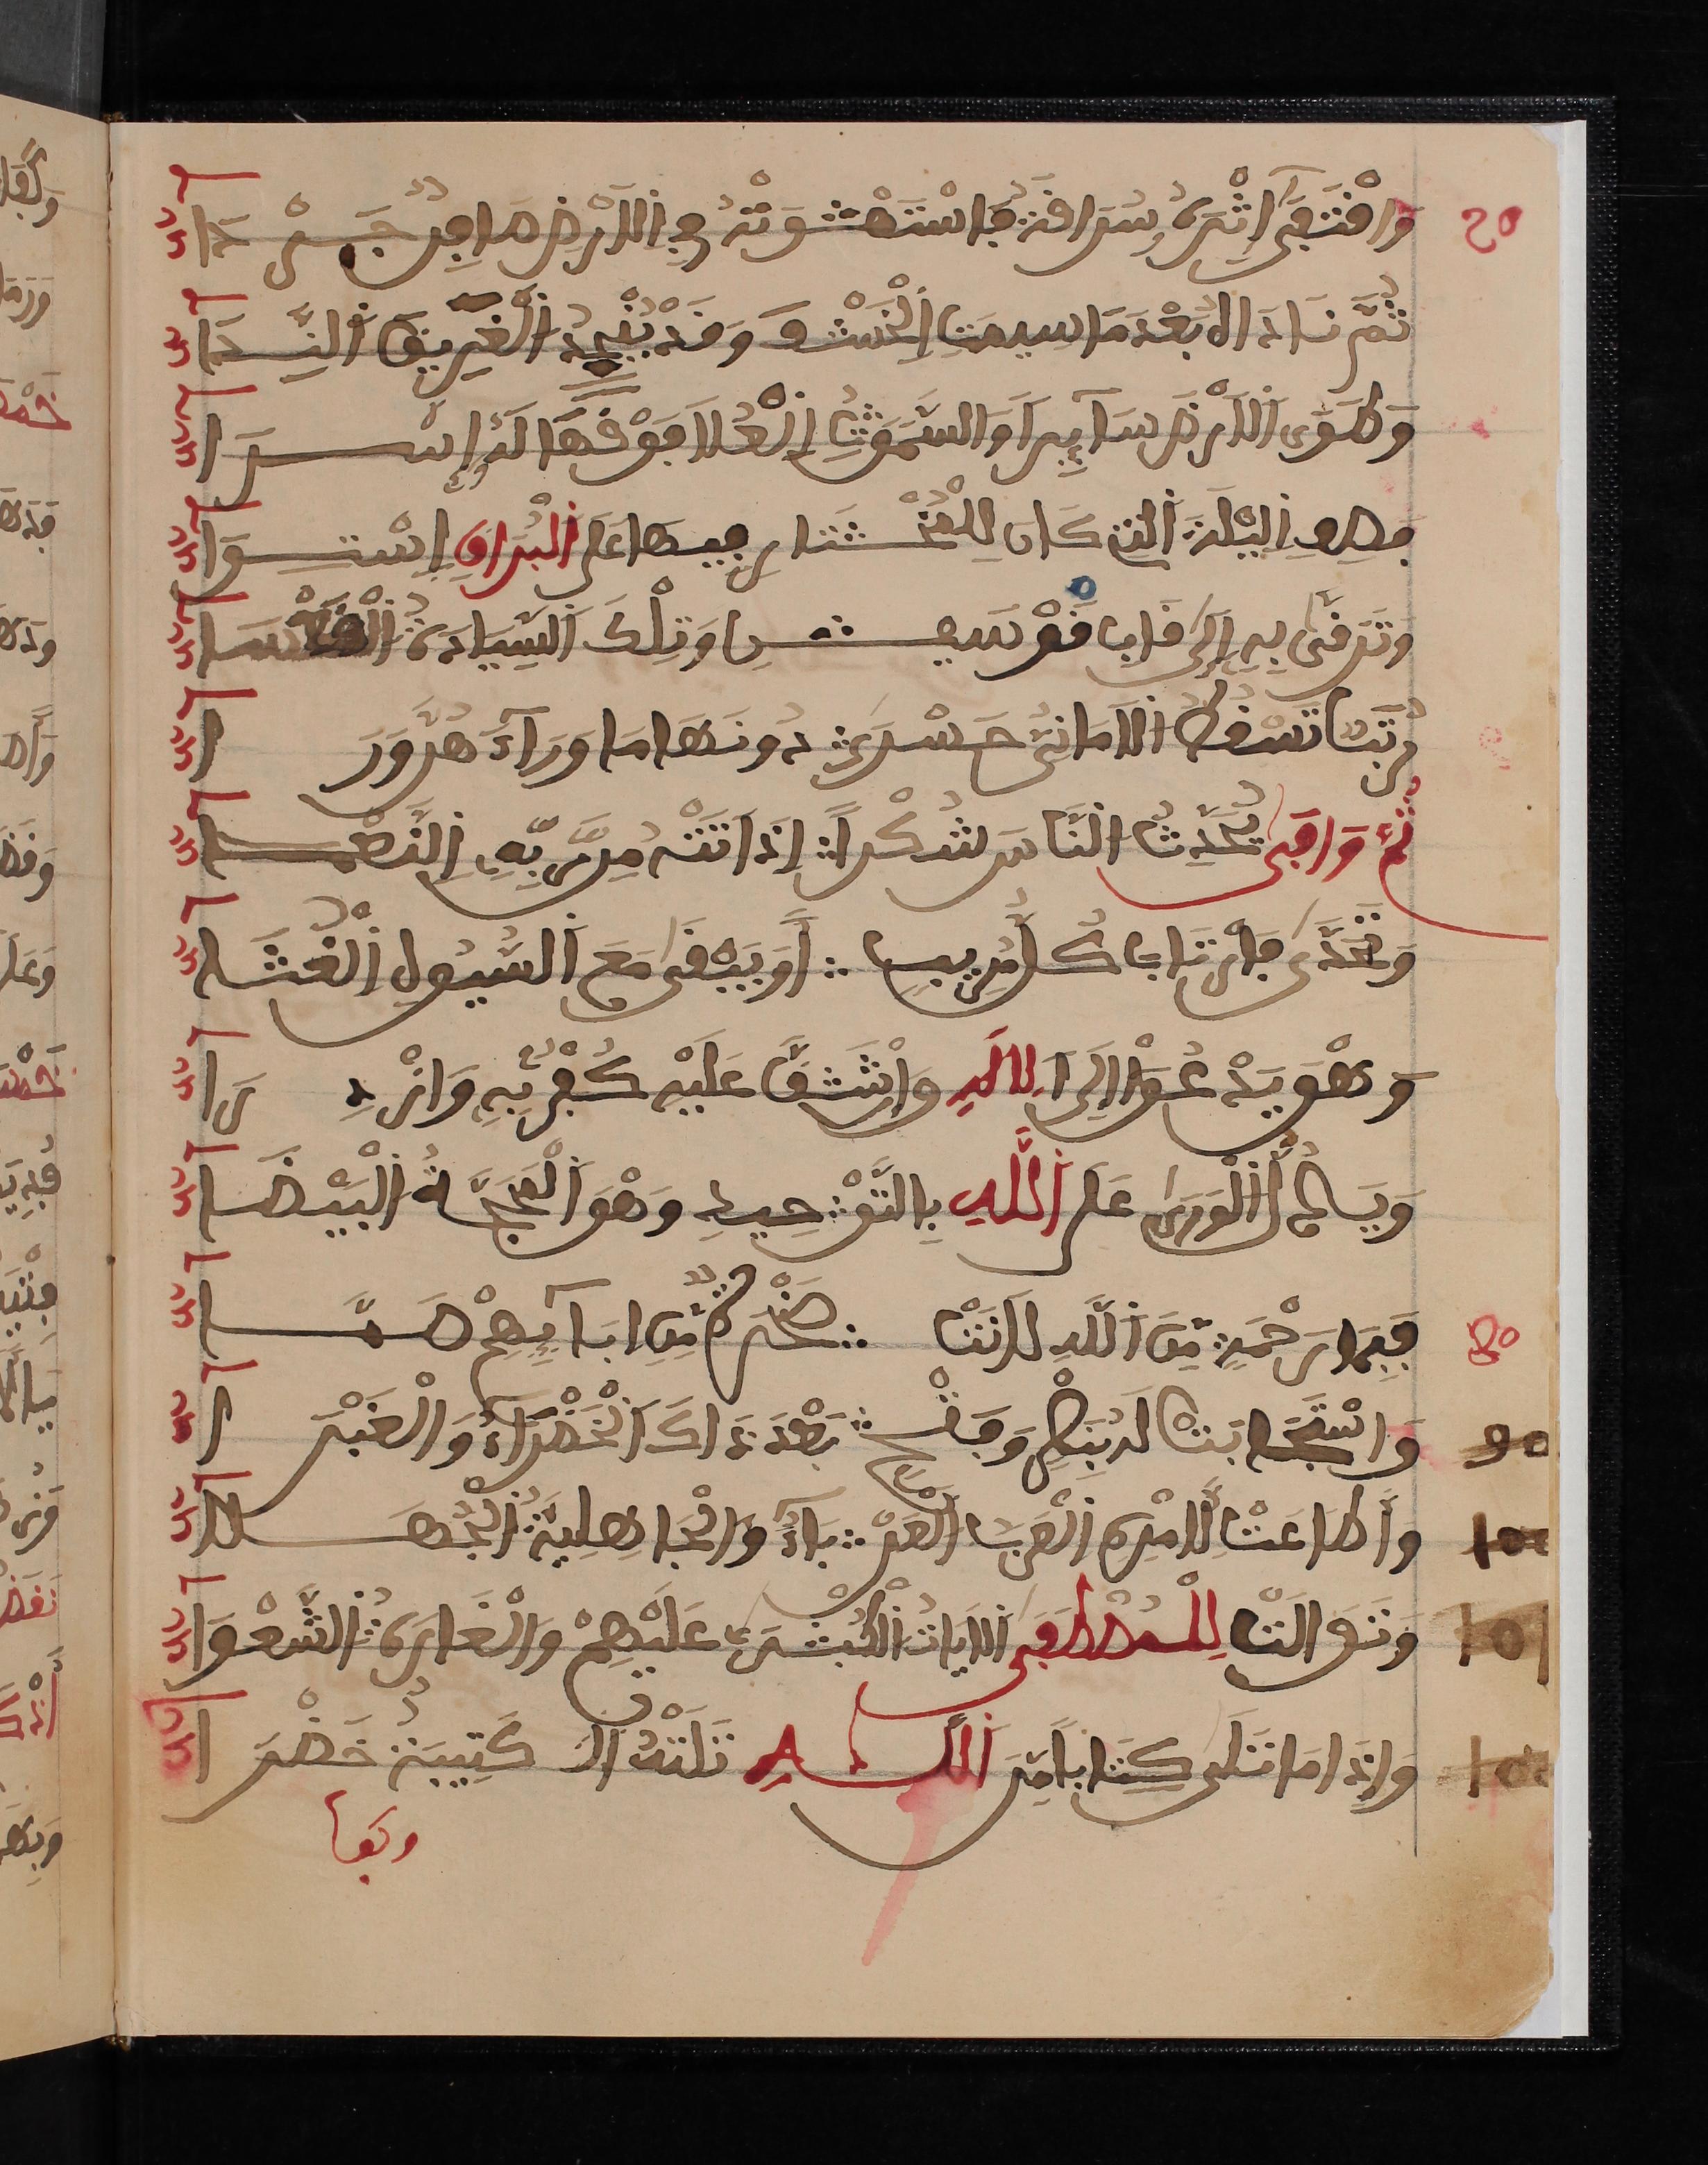 وَاقْتَفَى إِثْرَهُ سُرَاقَةُ فَاسْتَهْوَتْهُ فِي الَارْضِ صَافِنٌ جَرْدَاءُ
ثُمَّ نَادَاهُ بَعْدَ مَا سِيمَتِ الْخَسْفَ وَقَدْ يُنْجِدُ الْغَرِيقَ النِّدَاءُ
وَطَوَى الَارْضَ سَآئِرًا وَالسَّمَوَاتُ الْعُلَا فَوْقَهَا لَهُ إِسْرَاءُ
فَصِفِ الَّيْلَةَ الَّتِي كَانَ لِلْمُخْتَارِ فِيهَا عَلَى الْبُرَاقِ اسْتِوَاءُ
وَتَرَقَّى بِهِ إِلَى قَابِ قَوْسَيْنِ وَتِلْكَ السِّيَادَةُ الْقَعْسَاءُ
رُتَبٌ تَسْقُطُ الَامَانِي حَسْرَى دُونَهَا مَا وَرَآءَهُنَّ وَرَاءُ
ثُمَّ وَافَى يُحَدِّثُ النَّاسَ شُكْرًا إِذَ اتَتْهُ مِن رَّبِّهِ النَّعْمَاءُ
وَتَحَدَّى فَارْتَابَ كُلُّ مُرِيبٍ أَوَ يَبْقَى مَعَ السُّيُولِ الْغُثَاءُ
وَهْوَ يَدْعُوا إِلَى الِالَهِ وَإِن شَقَّ عَلَيْهِ كُفْرٌ بِهِ وَازْدِرَاءُ
وَيَدُلُّ الْوَرَى عَلَى اللَّهِ بِالتَّوْحِيدِ وَهْوَ الْمَحَجَّةُ الْبَيْضَاءُ
فَبِمَا رَحْمَةٍ مِنَ اللَّهِ لَانَتْ صَخْرَةٌ مِنِ ابَآئِهِمْ صَمَّاءُ
وَاسْتَجَابَتْ لَهُ بِنَصْرٍ وَفَتْحٍ بَعْدَ ذَاكَ الْخَضْرَآءُ وَالْغَبْرَاءُ
وَأَطَاعَتْ لِأَمْرِهِ الْعَرَبُ الْعَرْبَآءُ وَالْجَاهِلِيَّةُ الْجَهْلَاءُ
وَتَوَالَتْ لِلْمُصْطَفَى الَايَاتُ الْكُبْرَى عَلَيْهِمْ وَالْغَارَةُ الشَّعْوَاءُ
وَإِذَا مَا تَلَى كِتَابًا مِنَ اللَّهِ تَلَتْهُ كَتِيبَةٌ خَضْرَاءُ
وكفا